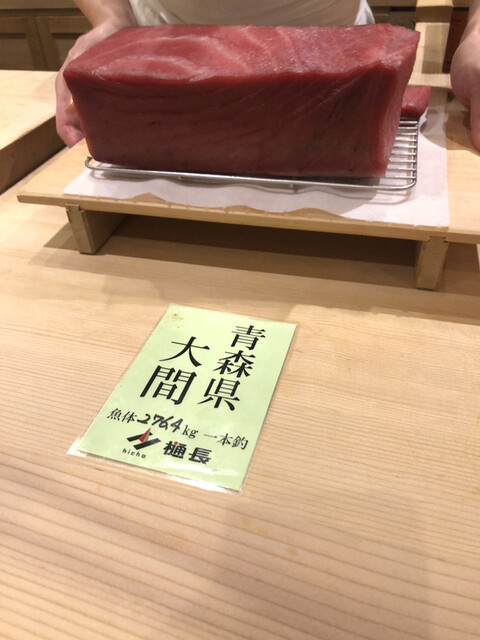 青森県
大間
魚体276.4kg 一本釣
hicho 樋長